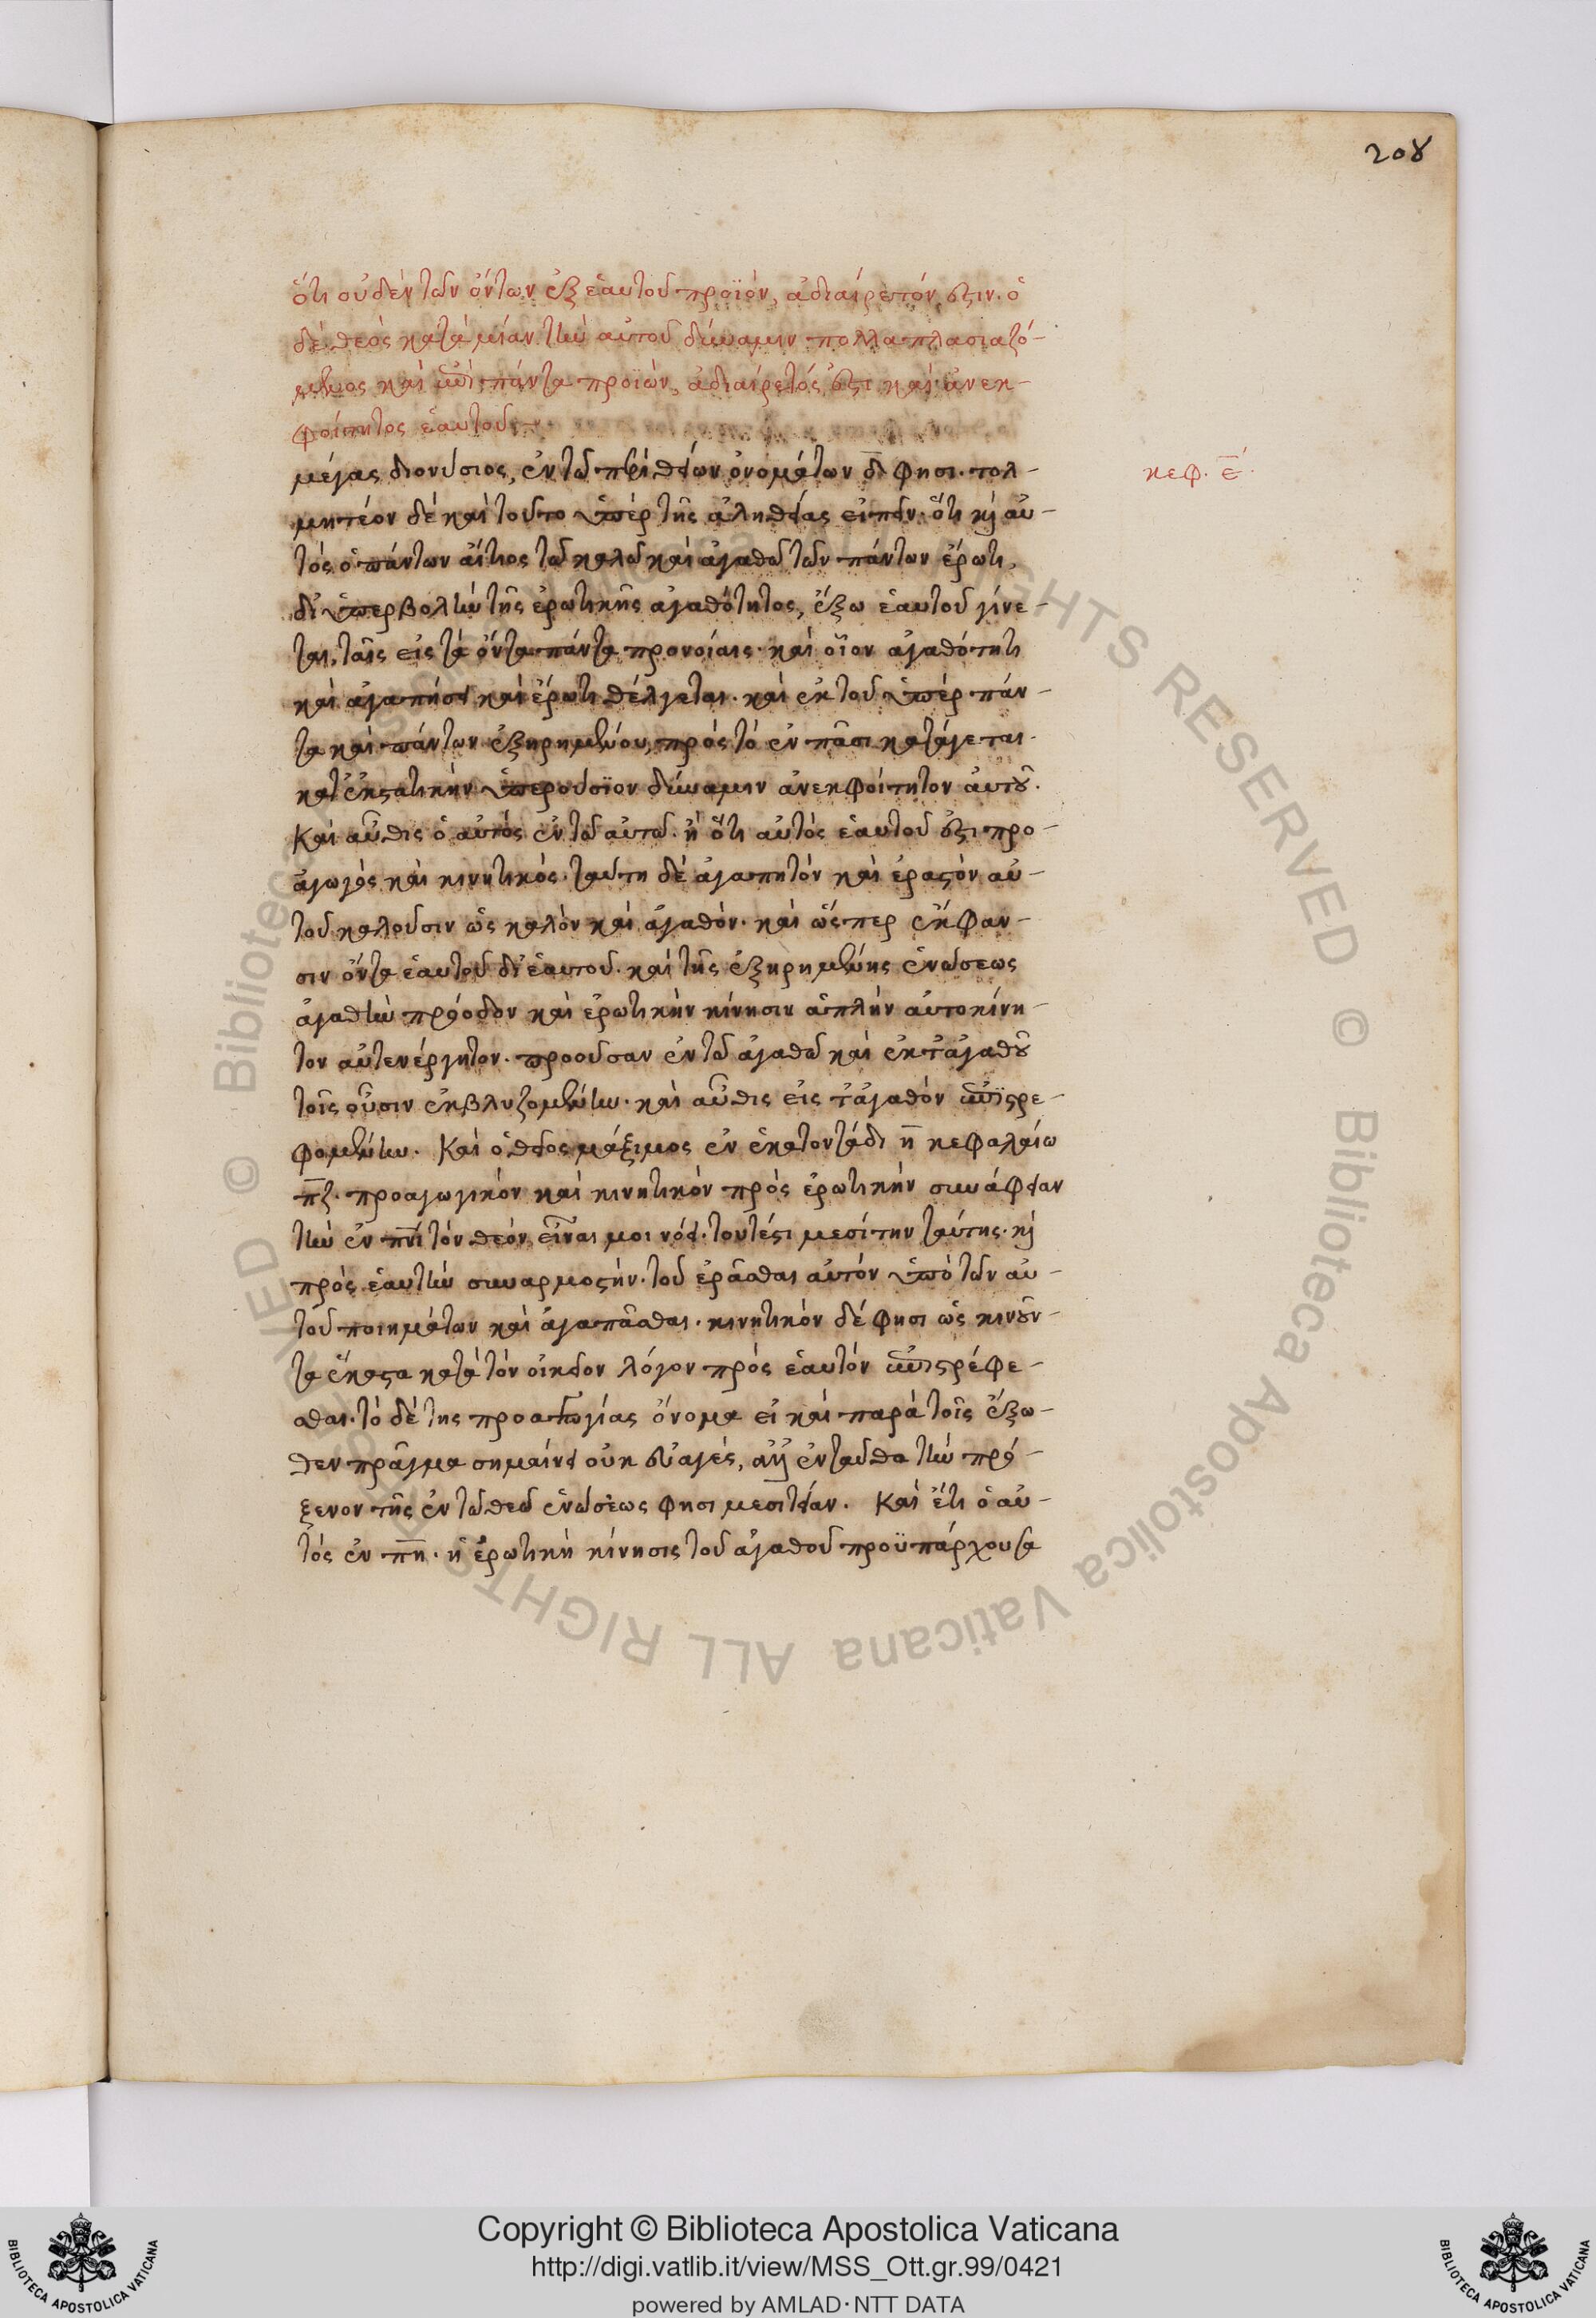 208
ὅτι οὐδὲν τῶν ὄντων ἐξ ἑαυτοῦ προϊόν, ἀδιαίρετόν ἐστιν. ὁ
δὲ θεὸς κατὰ μίαν τὴν αὐτοῦ δύναμιν πολλαπλασιαζό-
μενος καὶ ἐπὶ πάντα προϊών, ἀδιαίρετός ἐστι καὶ ἀνεκ-
φοίτητος ἑαυτοῦ:
μέγας διονύσιος, ἐν τῶ περὶ θείων ὀνομάτων δ φησι. τολ-
κεφ. ε.
μητέον δὲ καὶ τοῦτο ὑπὲρ τῆς ἀληθείας εἰπεῖν. ὅτι καὶ αὐ-
τὸς ὁ πάντων αἴτιος τῶ καλῶ καὶ ἀγαθῶ τῶν πάντων ἔρωτι,
δι ὑπερβολὴν τῆς ἐρωτικῆς ἀγαθότητος, ἔξω ἑαυτοῦ γίνε-
ται, ταῖς εἰς τὰ ὄντα πάντα προνοίαις. καὶ οἷον ἀγαθότητι
καὶ ἀγαπήσει καὶ ἔρωτι θέλγεται. καὶ ἐκ τοῦ ὑπὲρ πάν-
τα καὶ πάντων ἐξηρημένου, πρὸς τὸ ἐν πᾶσι κατάγεται
κατ ἐκστατικὴν ὑπερούσϊον δύναμιν ἀνεκφοίτητον αὐτοῦ.
Καὶ αὖθις ὁ αὐτὸς ἐν τῶ αὐτῶ. ἢ ὅτι αὐτὸς ἑαυτοῦ ἐστι προ-
αγωγὸς καὶ κινητικός. ταύτη δὲ ἀγαπητὸν καὶ ἐραστὸν αὐ-
τοῦ καλοῦσιν ὡς καλὸν καὶ ἀγαθόν. καὶ ὥσπερ ἔκφαν-
σιν ὄντα ἑαυτοῦ δι ἑαυτοῦ. καὶ τῆς ἐξηρημένης ἑνώσεως
ἀγαθὴν πρόοδον καὶ ἐρωτικὴν κίνησιν ἁπλὴν αὐτοκίνη-
τον αὐτενέργητον. προοῦσαν ἐν τῶ ἀγαθῶ καὶ ἐκ τἀγαθοῦ
τοῖς οὖσιν ἐκβλυζομένην. καὶ αὖθις εἰς τἀγαθὸν ἐπϊστρε-
φομένην. Καὶ ὁ θεῖος μάξιμος ἐν ἑκατοντάδι η κεφαλαίω
πζ. προαγωγικὸν καὶ κινητικὸν πρὸς ἐρωτικὴν συνάφειαν
τὴν ἐν πνι τὸν θεὸν εἶναι μοι νόει. τουτέστι μεσίτην ταύτης. καὶ
πρὸς ἑαυτὴν συναρμοστήν. τοῦ ἐρᾶσθαι αὐτὸν ὑπὸ τῶν αὐ-
τοῦ ποιημάτων καὶ ἀγαπᾶσθαι. κινητικὸν δέ φησι ὡς κινοῦν-
τα ἕκαστα κατὰ τὸν οἰκεῖον λόγον πρὸς ἑαυτὸν ἐπιστρέφε-
σθαι. τὸ δὲ τῆς προαγωγίας ὄνομα εἰ καὶ παρὰ τοῖς ἔξω-
θεν πρᾶγμα σημαίνει οὐκ εὐαγές, ἀλλ ἐνταῦθα τὴν πρό-
ξενον τῆς ἐν τῶ θεῶ ἑνώσεως φησι μεσιτείαν. Καὶ ἔτι ὁ αὐ-
τὸς ἐν πη. ἡ ἐρωτικὴ κίνησις τοῦ ἀγαθοῦ προϋπάρχουσα
© Biblioteca Apostolica Vaticana ALL RIGHTS RESERVED © Biblioteca Apostolica Vaticana ALL RIGHTS RESERVED
Copyright © Biblioteca Apostolica Vaticana
http://digi.vatlib.it/view/MSS_Ott.gr.99/0421
powered by AMLAD·NTT DATA
BIBLIOTECA APOSTOLICA VATICANA
BIBLIOTECA APOSTOLICA VATICANA